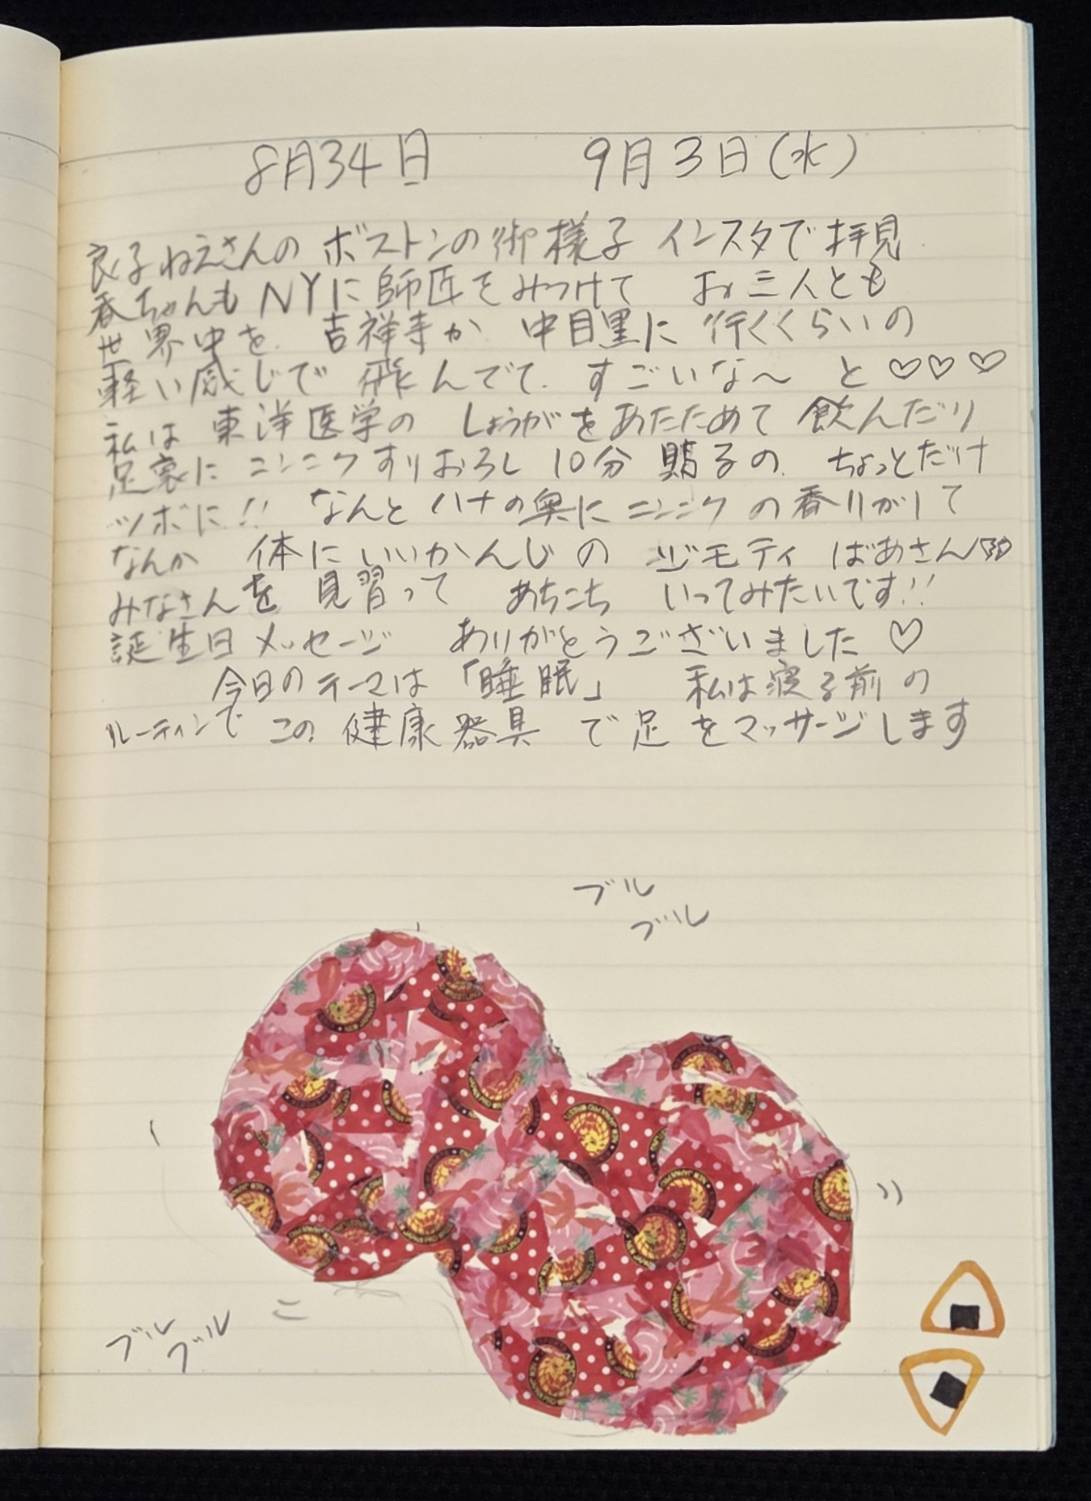 8月34日 9月3日(水)
良子ねえさんの ボストンの御様子 インスタで拝見
春ちゃんも NYに師匠をみつけて お三人とも
世界中を 吉祥寺か 中目黒に 行くくらいの
軽い感じで 飛んでて すごいな〜 と♡♡♡
私は 東洋医学の しょうがをあたためて 飲んだり
足裏に ニンニクすりおろし 10分 貼るの ちょっとだけ
ツボに!! なんと ハナの奥に ニンニク の 香りがして
なんか 体に いいかんじの ジモティ ばあさん
みなさんを 見習って あちこち いってみたいです!!
誕生日 メッセージ ありがとうございました♡
今日のテーマは 「睡眠」 私は寝る前の
ルーティンで この 健康器具 で 足 をマッサージします
ブル
ブル
ブル
ブル